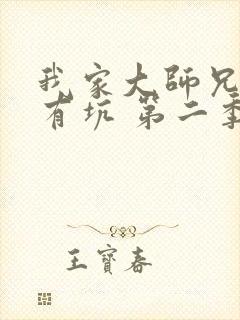 我家大師兄
有坑 第二季
王寶春